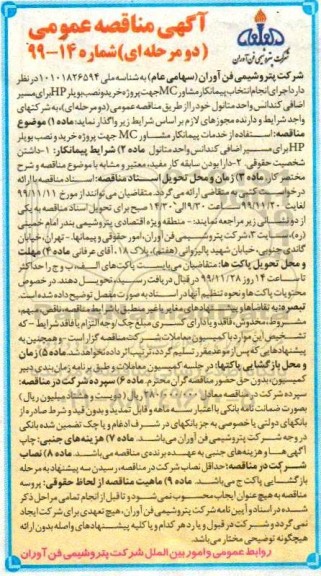 آگهی مناقصه عمومی
(دو مرحله ای) شماره ۱۴-۹۹
شرکت پتروشیمی فن آوران
شرکت پتروشیمی فن آوران (سهامی عام) به شناسه ملی ۱۰۱۰۱۸۲۶۵۹۴ در نظر
دارد اجرای انجام انتخاب پیمانکار مشاور MC جهت پروژه خرید و نصب بویلر HP برای مسیر
اضافی کندانس واحد متانول خود را از طریق مناقصه عمومی (دو مرحله ای)، به شرکتهای
واجد شرایط و دارنده مجوزهای لازم بر اساس شرایط زیر واگذار نماید: ماده ۱) موضوع
مناقصه: استفاده از خدمات پیمانکار مشاور MC جهت پروژه خرید و نصب بویلر
HP برای مسیر اضافی کندانس واحد متانول ماده ۲) شرایط پیمانکار: ۱- داشتن
شخصیت حقوقی ۲- دارا بودن سابقه کار مفید، معتبر و مشابه با موضوع مناقصه و شرح
مختصر کار. ماده ۳) زمان و محل تحویل اسناد مناقصه: اسناد مناقصه با ارائه
درخواست کتبی به متقاضی ارائه می گردد. متقاضیان می توانند از مورخ ۹۹/۱۱/۱۱
لغایت ۹۹/۱۱/۲۰ ساعت ۹:۳۰ الی ۱۴:۳۰ صبح برای تحویل اسناد مناقصه به یکی
از دو نشانی زیر مراجعه نمایند: - منطقه ویژه اقتصادی پتروشیمی بندر امام خمینی
(ره)، سایت ۲، شرکت پتروشیمی فن آوران، امور حقوقی و پیمانها. - تهران، خیابان
گاندی جنوبی، خیابان شهید پالیزوانی (هفتم)، پلاک ۱۸، آقای عرفانی ماده ۴) مهلت
و محل تحویل پاکت ها: متقاضیان می بایست پاکت های الف، ب و ج را حداکثر
تا ساعت ۱۴ روز ۹۹/۱۱/۲۸ در قبال دریافت رسید، تحویل دهند. در خصوص
محتویات پاکت ها و نحوه تنظیم آنها در اسناد به صورت مفصل توضیح داده شده است.
تبصره: به تقاضاها و پیشنهادهای مغایر یا غیر منطبق با شرایط مناقصه، ناقص، مبهم،
مشروط، مخدوش، فاقد و یا دارای کسری مبلغ چک/وجه التزام یا فاقد شرایط - که
تشخیص این موارد با کمیسیون معاملات شرکت مناقصه گزار است - و همچنین به
پیشنهادهایی که پس از موعد مقرر تسلیم گردد، ترتیب اثر داده نخواهد شد. ماده ۵) زمان و
محل بازگشایی پاکتها: در جلسه کمیسیون معاملات و طبق برنامه زمان بندی دبیر
کمیسیون، بدون حق حضور مناقصه گران محترم. ماده ۶) سپرده شرکت در مناقصه:
بصورت ضمانت نامه بانکی با اعتبار سه ماهه و قابل تمدید و بدون قید و شرط صادره از
بانکهای دولتی یا خصوصی به جز بانکهای در شرف ادغام و یا چک تضمین شده بانکی
در وجه شرکت پتروشیمی فن آوران می باشد. ماده ۷) هزینه های جنبی: چاپ
آگهی ها و هزینه های جنبی به عهده برنده ی مناقصه می باشد. ماده ۸) نصاب
شرکت در مناقصه: حداقل نصاب شرکت در مناقصه، رسیدن سه پیشنهاد به مرحله
بازگشایی پاکت ج می باشد. ماده ۹) ماهیت مناقصه از لحاظ حقوقی: پروسه
مناقصه به هیچ عنوان ایجاب محسوب نمی شود و تا قبل از انجام تمامی مراحل ذکر
شده در اسناد و آیین نامه شرکت پتروشیمی فن آوران، هیچ تعهدی برای شرکت ایجاد
نمی گردد و شرکت در قبول و یا رد هر کدام و یا کلیه پیشنهادهای واصله بدون ارائه
هیچگونه توضیحی مختار می باشد.
روابط عمومی و امور بین الملل شرکت پتروشیمی فن آوران